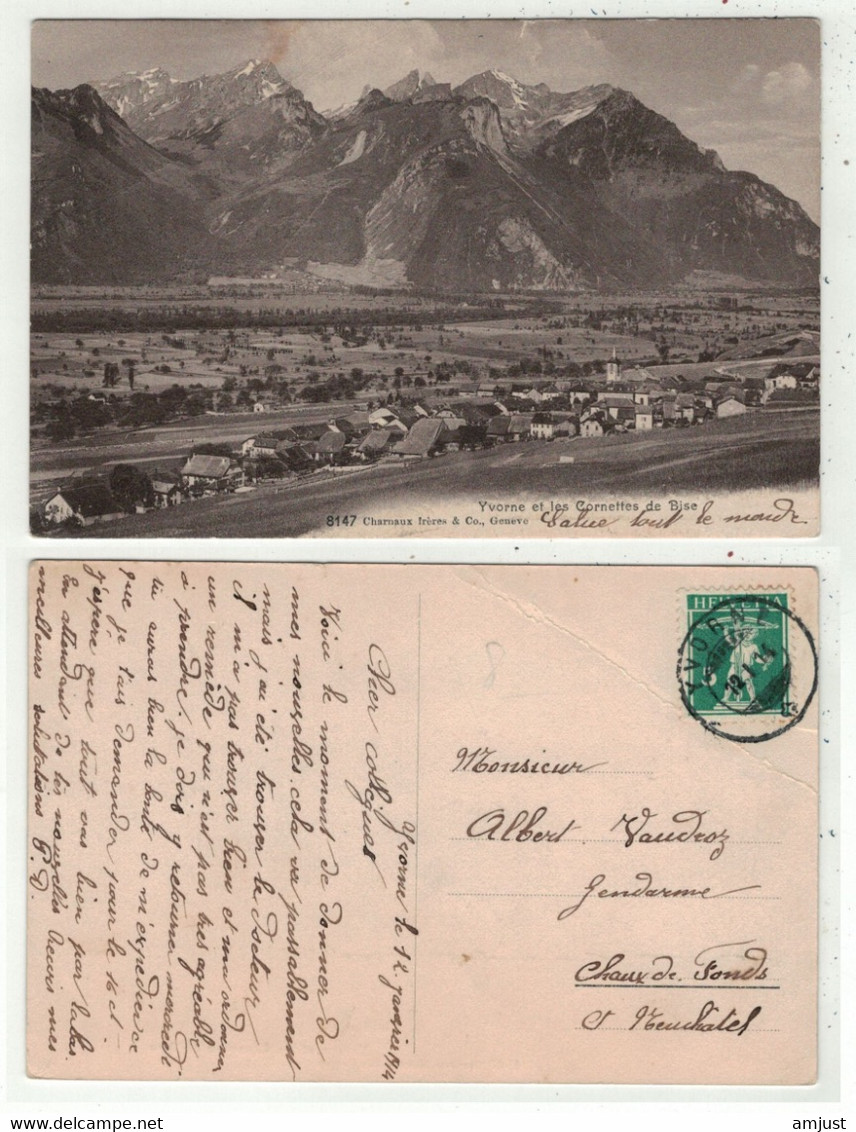 Yvorne et les Cornettes de Bise
8147 Charnaux frères & Co., Genève
Salue tout le monde
HELVETIA
YVORNE
12.I.14
Monsieur
Albert Vaudroz
Gendarme
Chaux de Fonds
Ct Neuchâtel
Yvorne le 12 janvier 1914
Cher collègues
Voici le moment de donner de
mes nouvelles, cela va passablement
mais j'ai été trouver le Docteur
il m'a pas trouver bien et m'a ordonner
un remède qui n'est pas très agréable
à prendre, je dois y retourner mercredi
tu auras bien la bonté de m'expédier ce
que je t'ais demander pour le 16 ct -
j'espère que tout vas bien par labas.
En attendant de tes nouvelles Recois mes
meilleures salutations
amjust